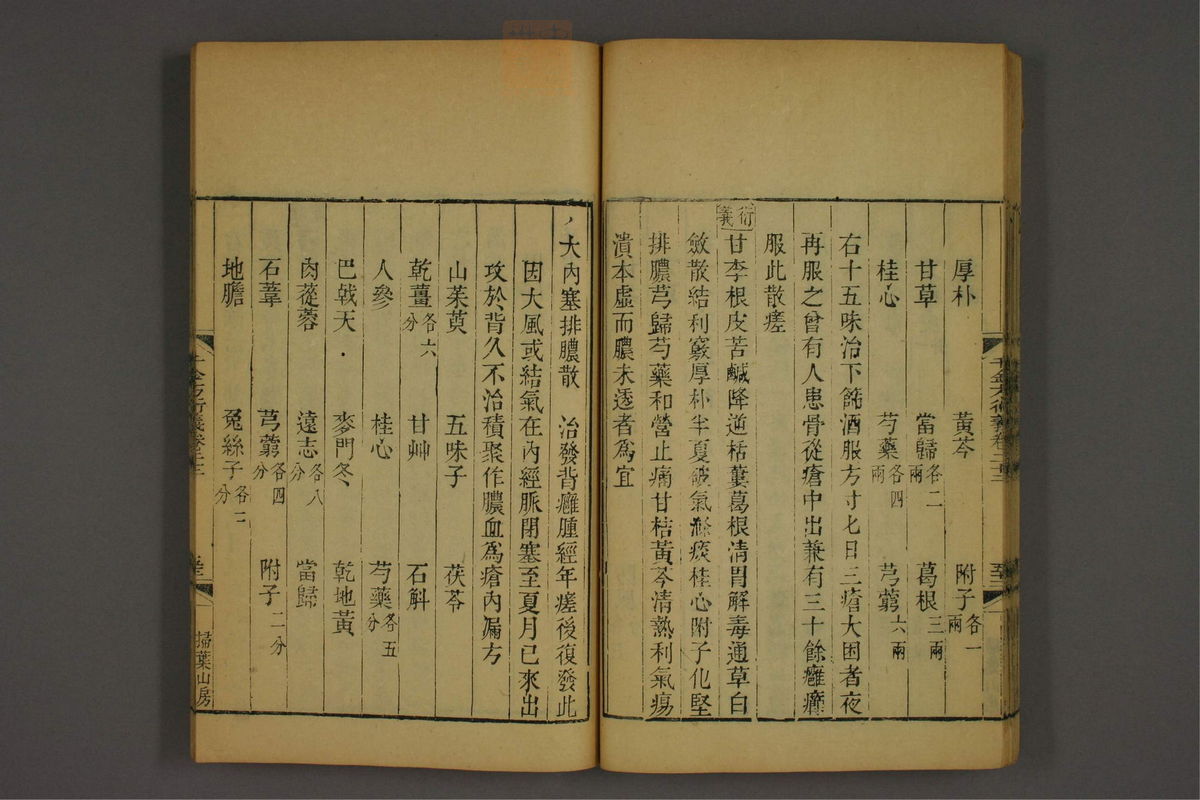 厚朴 黃芩 附子各一兩
甘草 當歸各二兩 葛根三兩
桂心 芍藥各四兩 芎藭六兩
右十五味治下篩酒服方寸匕日三瘡大困者夜
再服之曾有人患骨從瘡中出兼有三十餘癰癤
服此散瘥
衍義
甘李根皮苦鹹降逆栝蔞葛根清胃解毒通草白
斂散結利竅厚朴半夏破氣滌痰桂心附子化堅
排膿芎歸芍藥和營止痛甘桔黃芩清熱利氣瘍
潰本虛而膿未透者爲宜
大內塞排膿散 治發背癰腫經年瘥後復發此
因大風或結氣在內經脈閉塞至夏月已來出
攻於背久不治積聚作膿血爲瘡內漏方
山茱萸 五味子 茯苓
乾薑各六分 甘艸 石斛
人參 桂心 芍藥各五分
巴戟天 麥門冬 乾地黃
肉蓯蓉 遠志各八分 當歸
石葦 芎藭各四分 附子二分
地膽 菟絲子各三分
千金方衍義卷二十二
掃葉山房